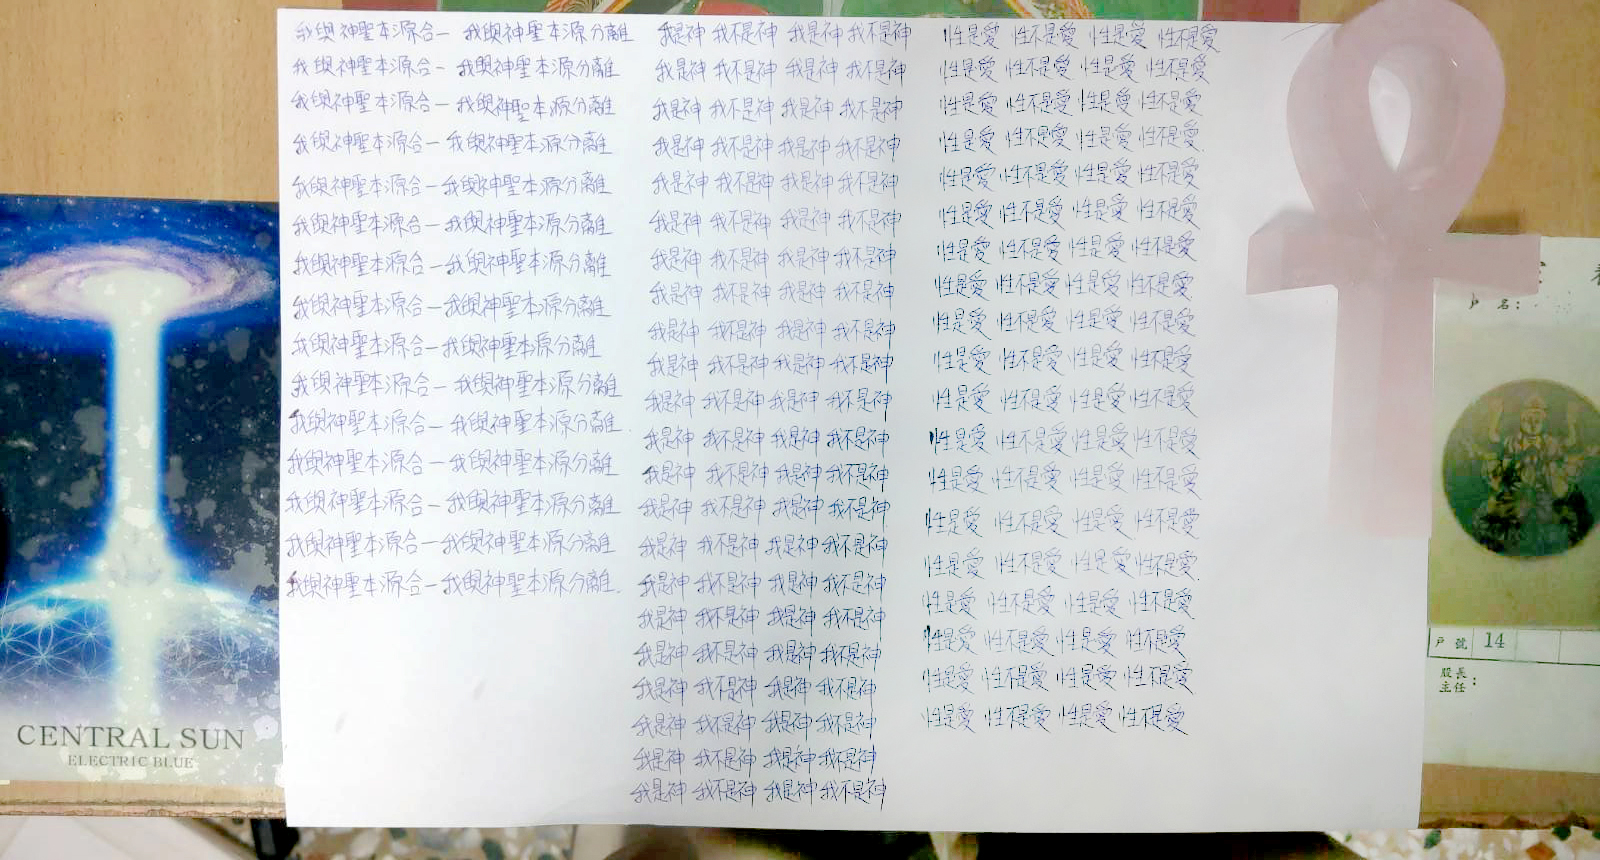 我與神聖本源合一 我與神聖本源分離
我與神聖本源合一 我與神聖本源分離
我與神聖本源合一 我與神聖本源分離
我與神聖本源合一 我與神聖本源分離
我與神聖本源合一 我與神聖本源分離
我與神聖本源合一 我與神聖本源分離
我與神聖本源合一 我與神聖本源分離
我與神聖本源合一 我與神聖本源分離
我與神聖本源合一 我與神聖本源分離
我與神聖本源合一 我與神聖本源分離
我與神聖本源合一 我與神聖本源分離
我與神聖本源合一 我與神聖本源分離
我與神聖本源合一 我與神聖本源分離
我與神聖本源合一 我與神聖本源分離
我與神聖本源合一 我與神聖本源分離
我是神 我不是神 我是神 我不是神
我是神 我不是神 我是神 我不是神
我是神 我不是神 我是神 我不是神
我是神 我不是神 我是神 我不是神
我是神 我不是神 我是神 我不是神
我是神 我不是神 我是神 我不是神
我是神 我不是神 我是神 我不是神
我是神 我不是神 我是神 我不是神
我是神 我不是神 我是神 我不是神
我是神 我不是神 我是神 我不是神
我是神 我不是神 我是神 我不是神
我是神 我不是神 我是神 我不是神
我是神 我不是神 我是神 我不是神
我是神 我不是神 我是神 我不是神
我是神 我不是神 我是神 我不是神
我是神 我不是神 我是神 我不是神
我是神 我不是神 我是神 我不是神
我是神 我不是神 我是神 我不是神
我是神 我不是神 我是神 我不是神
我是神 我不是神 我是神 我不是神
我是神 我不是神 我是神 我不是神
我是神 我不是神 我是神 我不是神
性是愛 性不是愛 性是愛 性不是愛
性是愛 性不是愛 性是愛 性不是愛
性是愛 性不是愛 性是愛 性不是愛
性是愛 性不是愛 性是愛 性不是愛
性是愛 性不是愛 性是愛 性不是愛
性是愛 性不是愛 性是愛 性不是愛
性是愛 性不是愛 性是愛 性不是愛
性是愛 性不是愛 性是愛 性不是愛
性是愛 性不是愛 性是愛 性不是愛
性是愛 性不是愛 性是愛 性不是愛
性是愛 性不是愛 性是愛 性不是愛
性是愛 性不是愛 性是愛 性不是愛
性是愛 性不是愛 性是愛 性不是愛
性是愛 性不是愛 性是愛 性不是愛
性是愛 性不是愛 性是愛 性不是愛
性是愛 性不是愛 性是愛 性不是愛
性是愛 性不是愛 性是愛 性不是愛
性是愛 性不是愛 性是愛 性不是愛
性是愛 性不是愛 性是愛 性不是愛
CENTRAL SUN
ELECTRIC BLUE
戶名：
戶號 14
股長
主任：